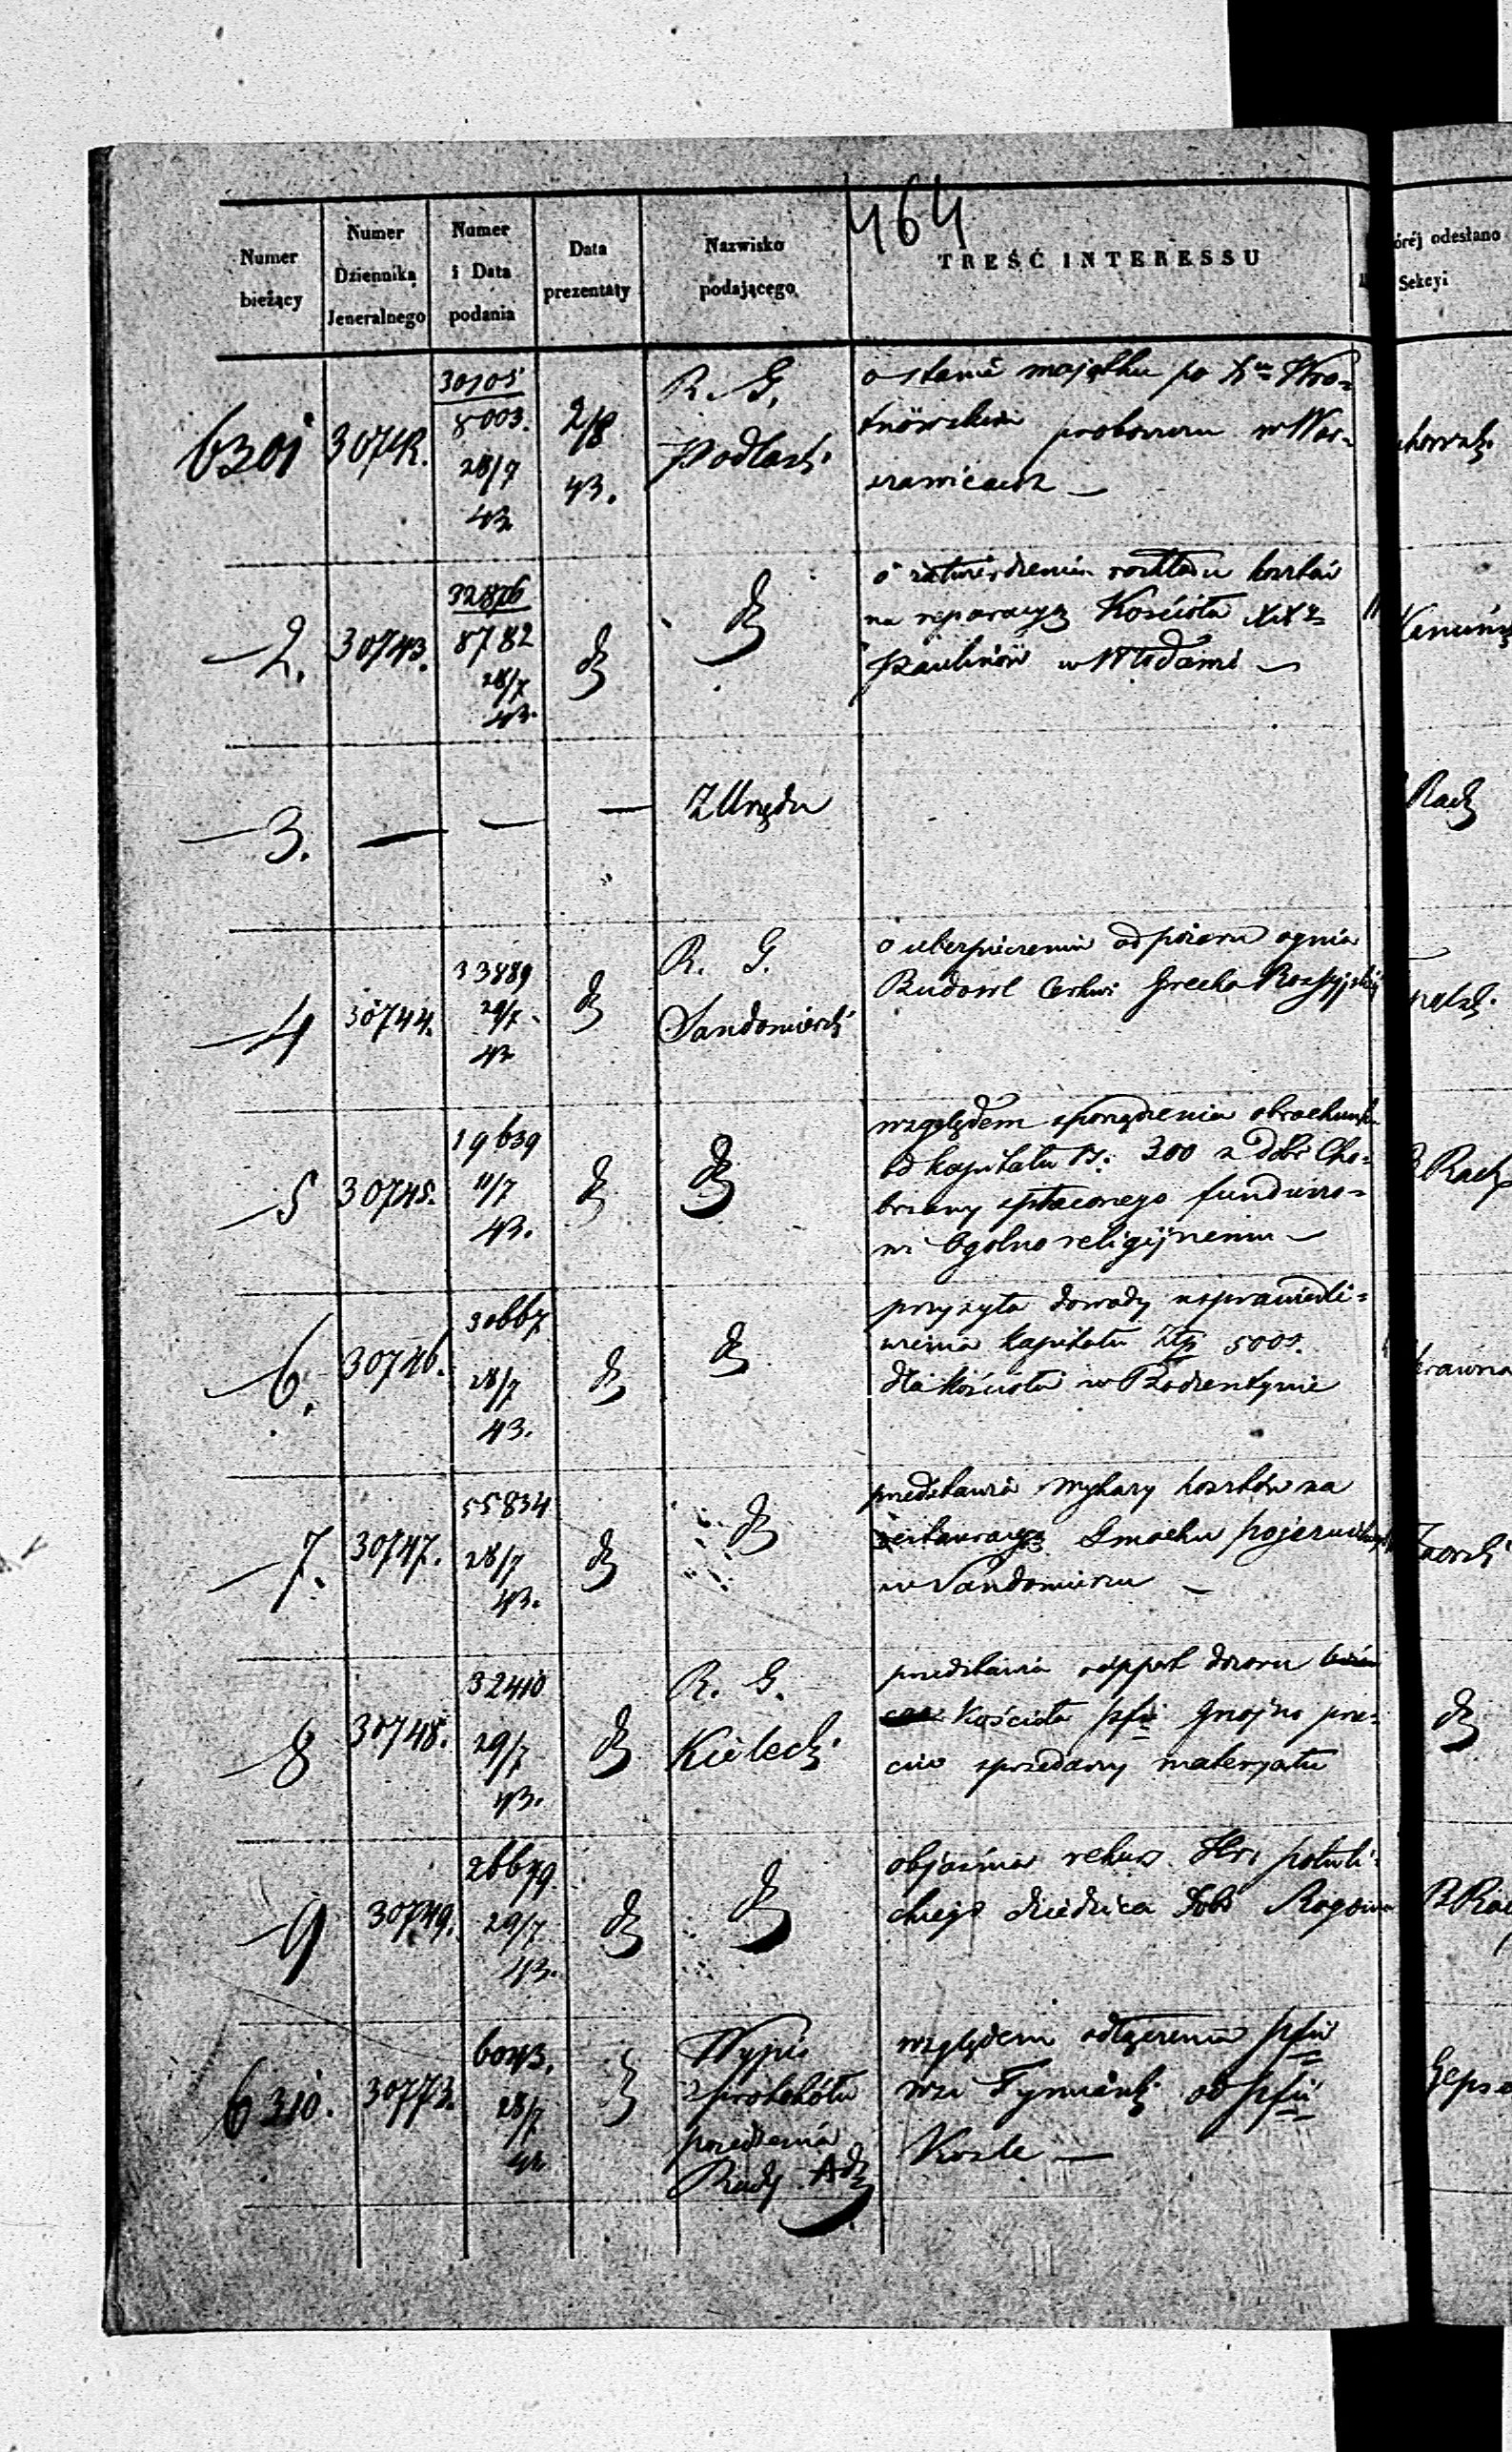 464
Numer bieżący
Numer Dziennika Jeneralnego
Numer i Data podania
Data prezentaty
Nazwisko podającego
TREŚĆ INTERESSU
órej odesłano
Sekcyi
6301 30742. 30105 8003. 28/7 43. 2/8 43. R. G. Podlaski
o stanie majątku po
proboszczu w War-
szawicach —
2. 30743. 32826 8782 28/7 43. d
o zatwierdzenie rozkładu kosztów
na reparacyą Kościoła XXz
Paulinów w Włodawie —
3. — — — Z Urzędu
Rack
4 30744. 33889 29/7 43 R. G. Sandomierski
o ubezpieczenie od pożaru ognia
Budowl Cerkwi Grecko Rossyjskiej
5 30745. 19639 11/7 43.
względem sporządzenia obrachunku
od kapitału rs. 300 z dóbr Cho-
brzany spłaconego funduszo-
wi Ogólno religijnemu —
6. 30746. 30667 28/7 43.
przysyła dowody usprawiedli-
wienia kapitału Złp 500.
dla kościoła w Bodzentynie
7. 30747. 55834 28/7 43.
przedstawia wykazy kosztów na
restauracyą Gmachu pojezuickiego
w Sandomierzu —
8 30748. 32410 29/7 43. R. G. Kielecki
przedstawia rapport dozoru
Kościoła pfii Gnojno prze-
ciw sprzedaży materyału
9 30749. 26679 29/7 43.
objaśnia rekurs Hr. Potuli-
ckiego dziedzica Dóbr
6310. 30773. 6043. 28/7
Wypis
z protokółu
posiedzenia
Rady Adm
względem odłączenia pfii
wsi Tymianki od pfii
Kozle —